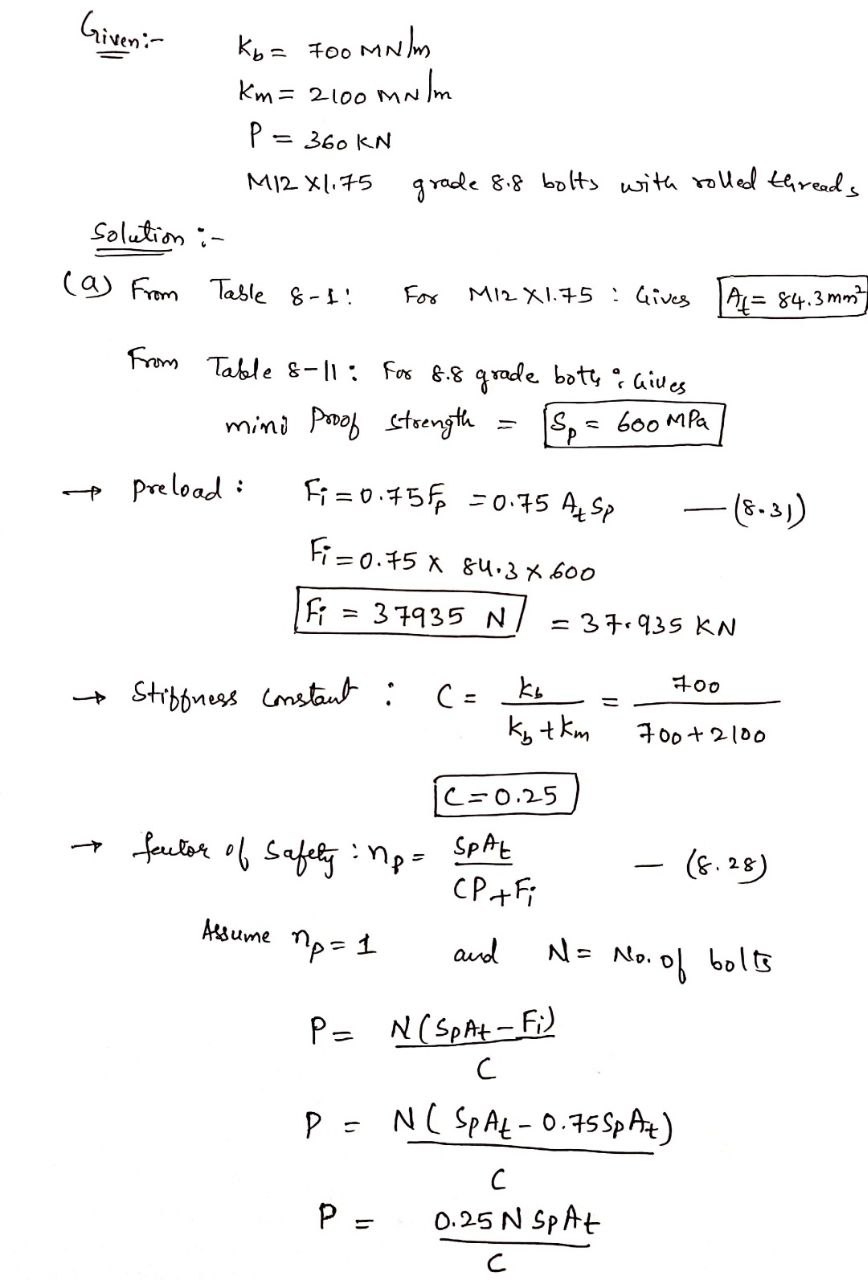 Given:-
Kb = 700 MN/m
Km = 2100 MN/m
P = 360 KN
M12 X1.75 grade 8.8 bolts with rolled threads
Solution :-
(a) From Table 8-1: For M12 X1.75 : Gives At = 84.3 mm²
From Table 8-11: For 8.8 grade botts : Gives
mini Proof strength = Sp = 600 MPa
→ preload : Fi = 0.75 Fp = 0.75 At Sp — (8.31)
Fi = 0.75 X 84.3 X 600
Fi = 37935 N = 37.935 KN
→ Stiffness Constant : C = Kb / (Kb + Km) = 700 / (700 + 2100)
C = 0.25
→ factor of Safety : np = SpAt / (CP + Fi) — (8.28)
Assume np = 1 and N = No. of bolts
P = N (SpAt - Fi) / C
P = N ( SpAt - 0.75 SpAt) / C
P = 0.25 N SpAt / C